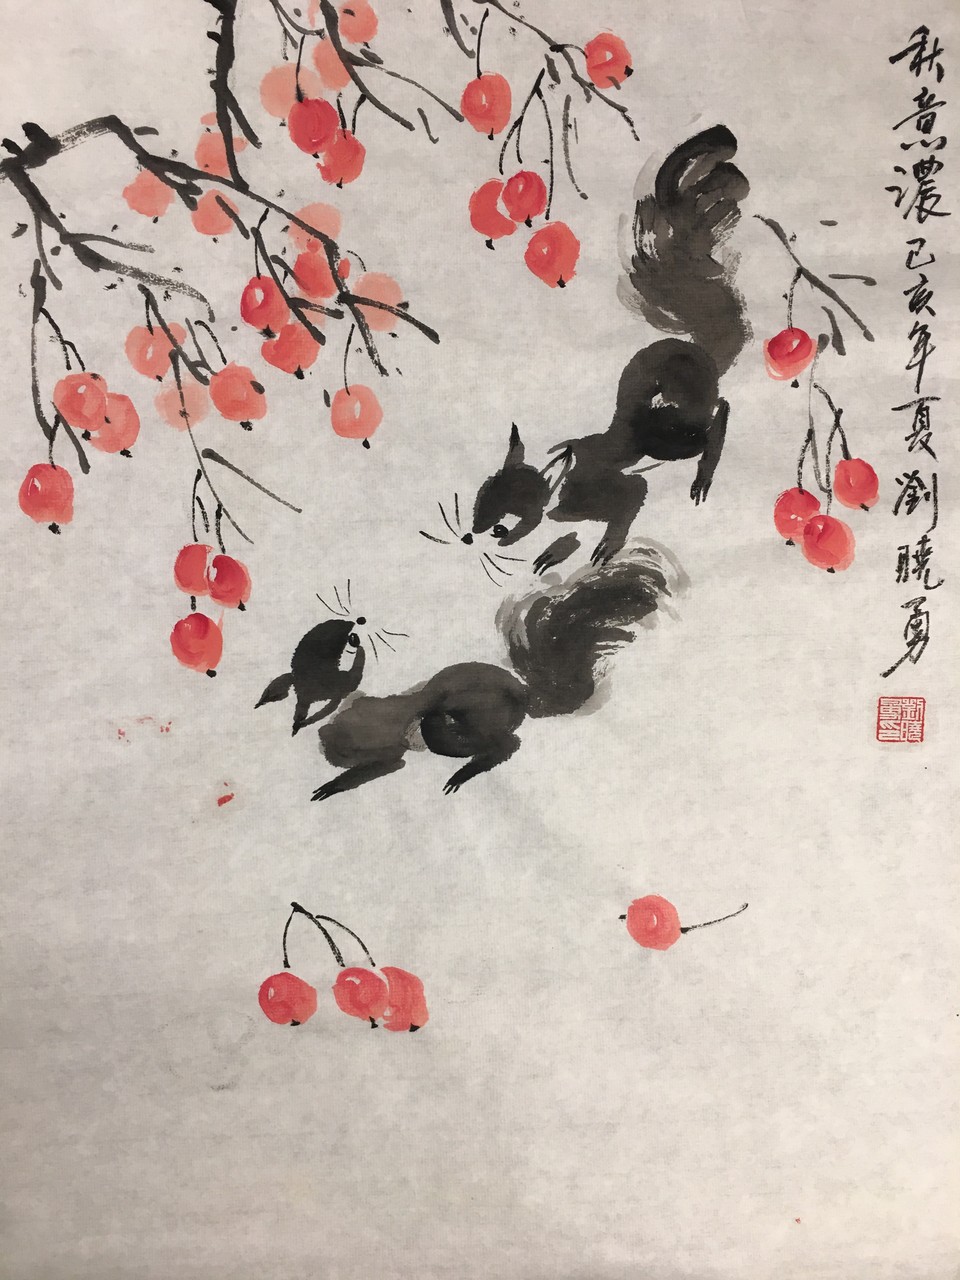 秋意濃 己亥年夏 劉曉勇
劉曉
勇印